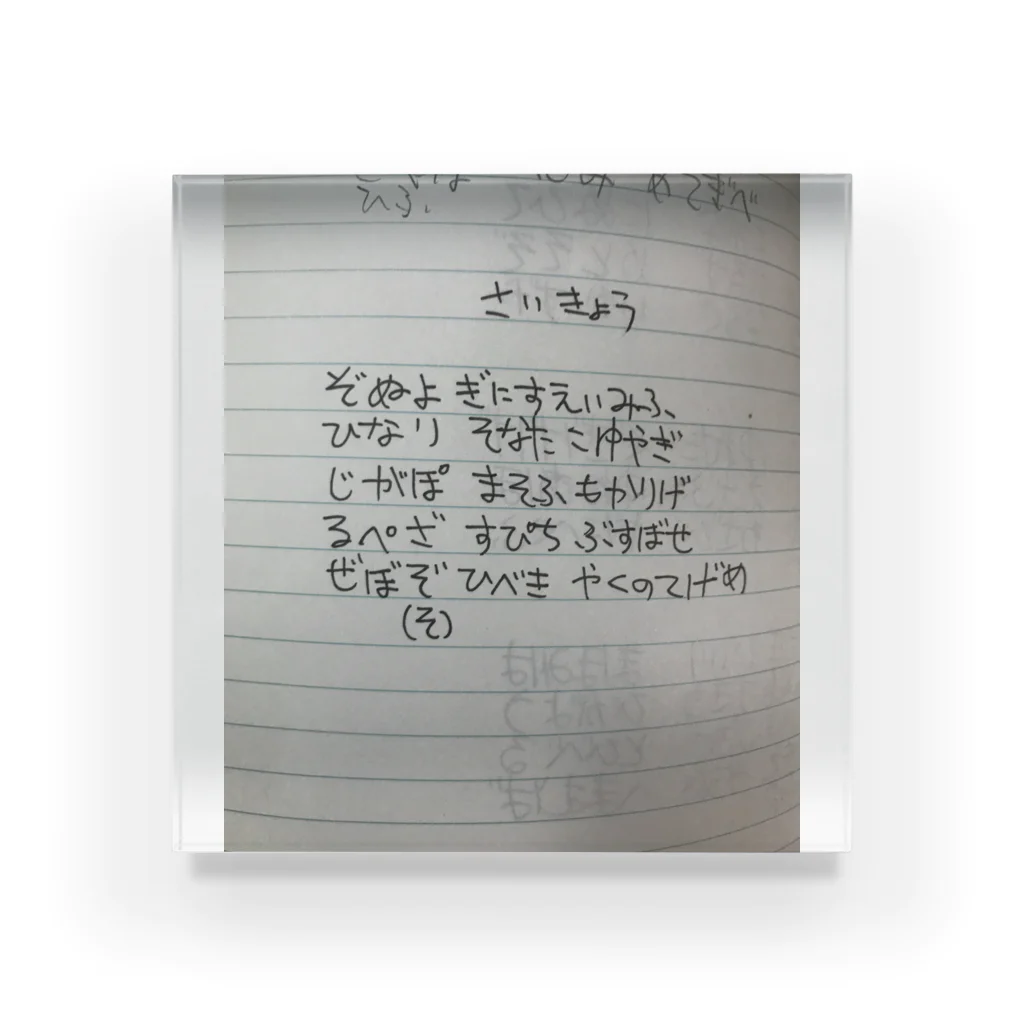 ひふ
さいきょう
ぞぬよ ぎにすえいみふ
ひなり そなた こゆやぎ
じがぽ まそふ もかりげ
るぺざ すぴち ぶすばせ
ぜぼぞ ひべき やくのてげめ
(そ)